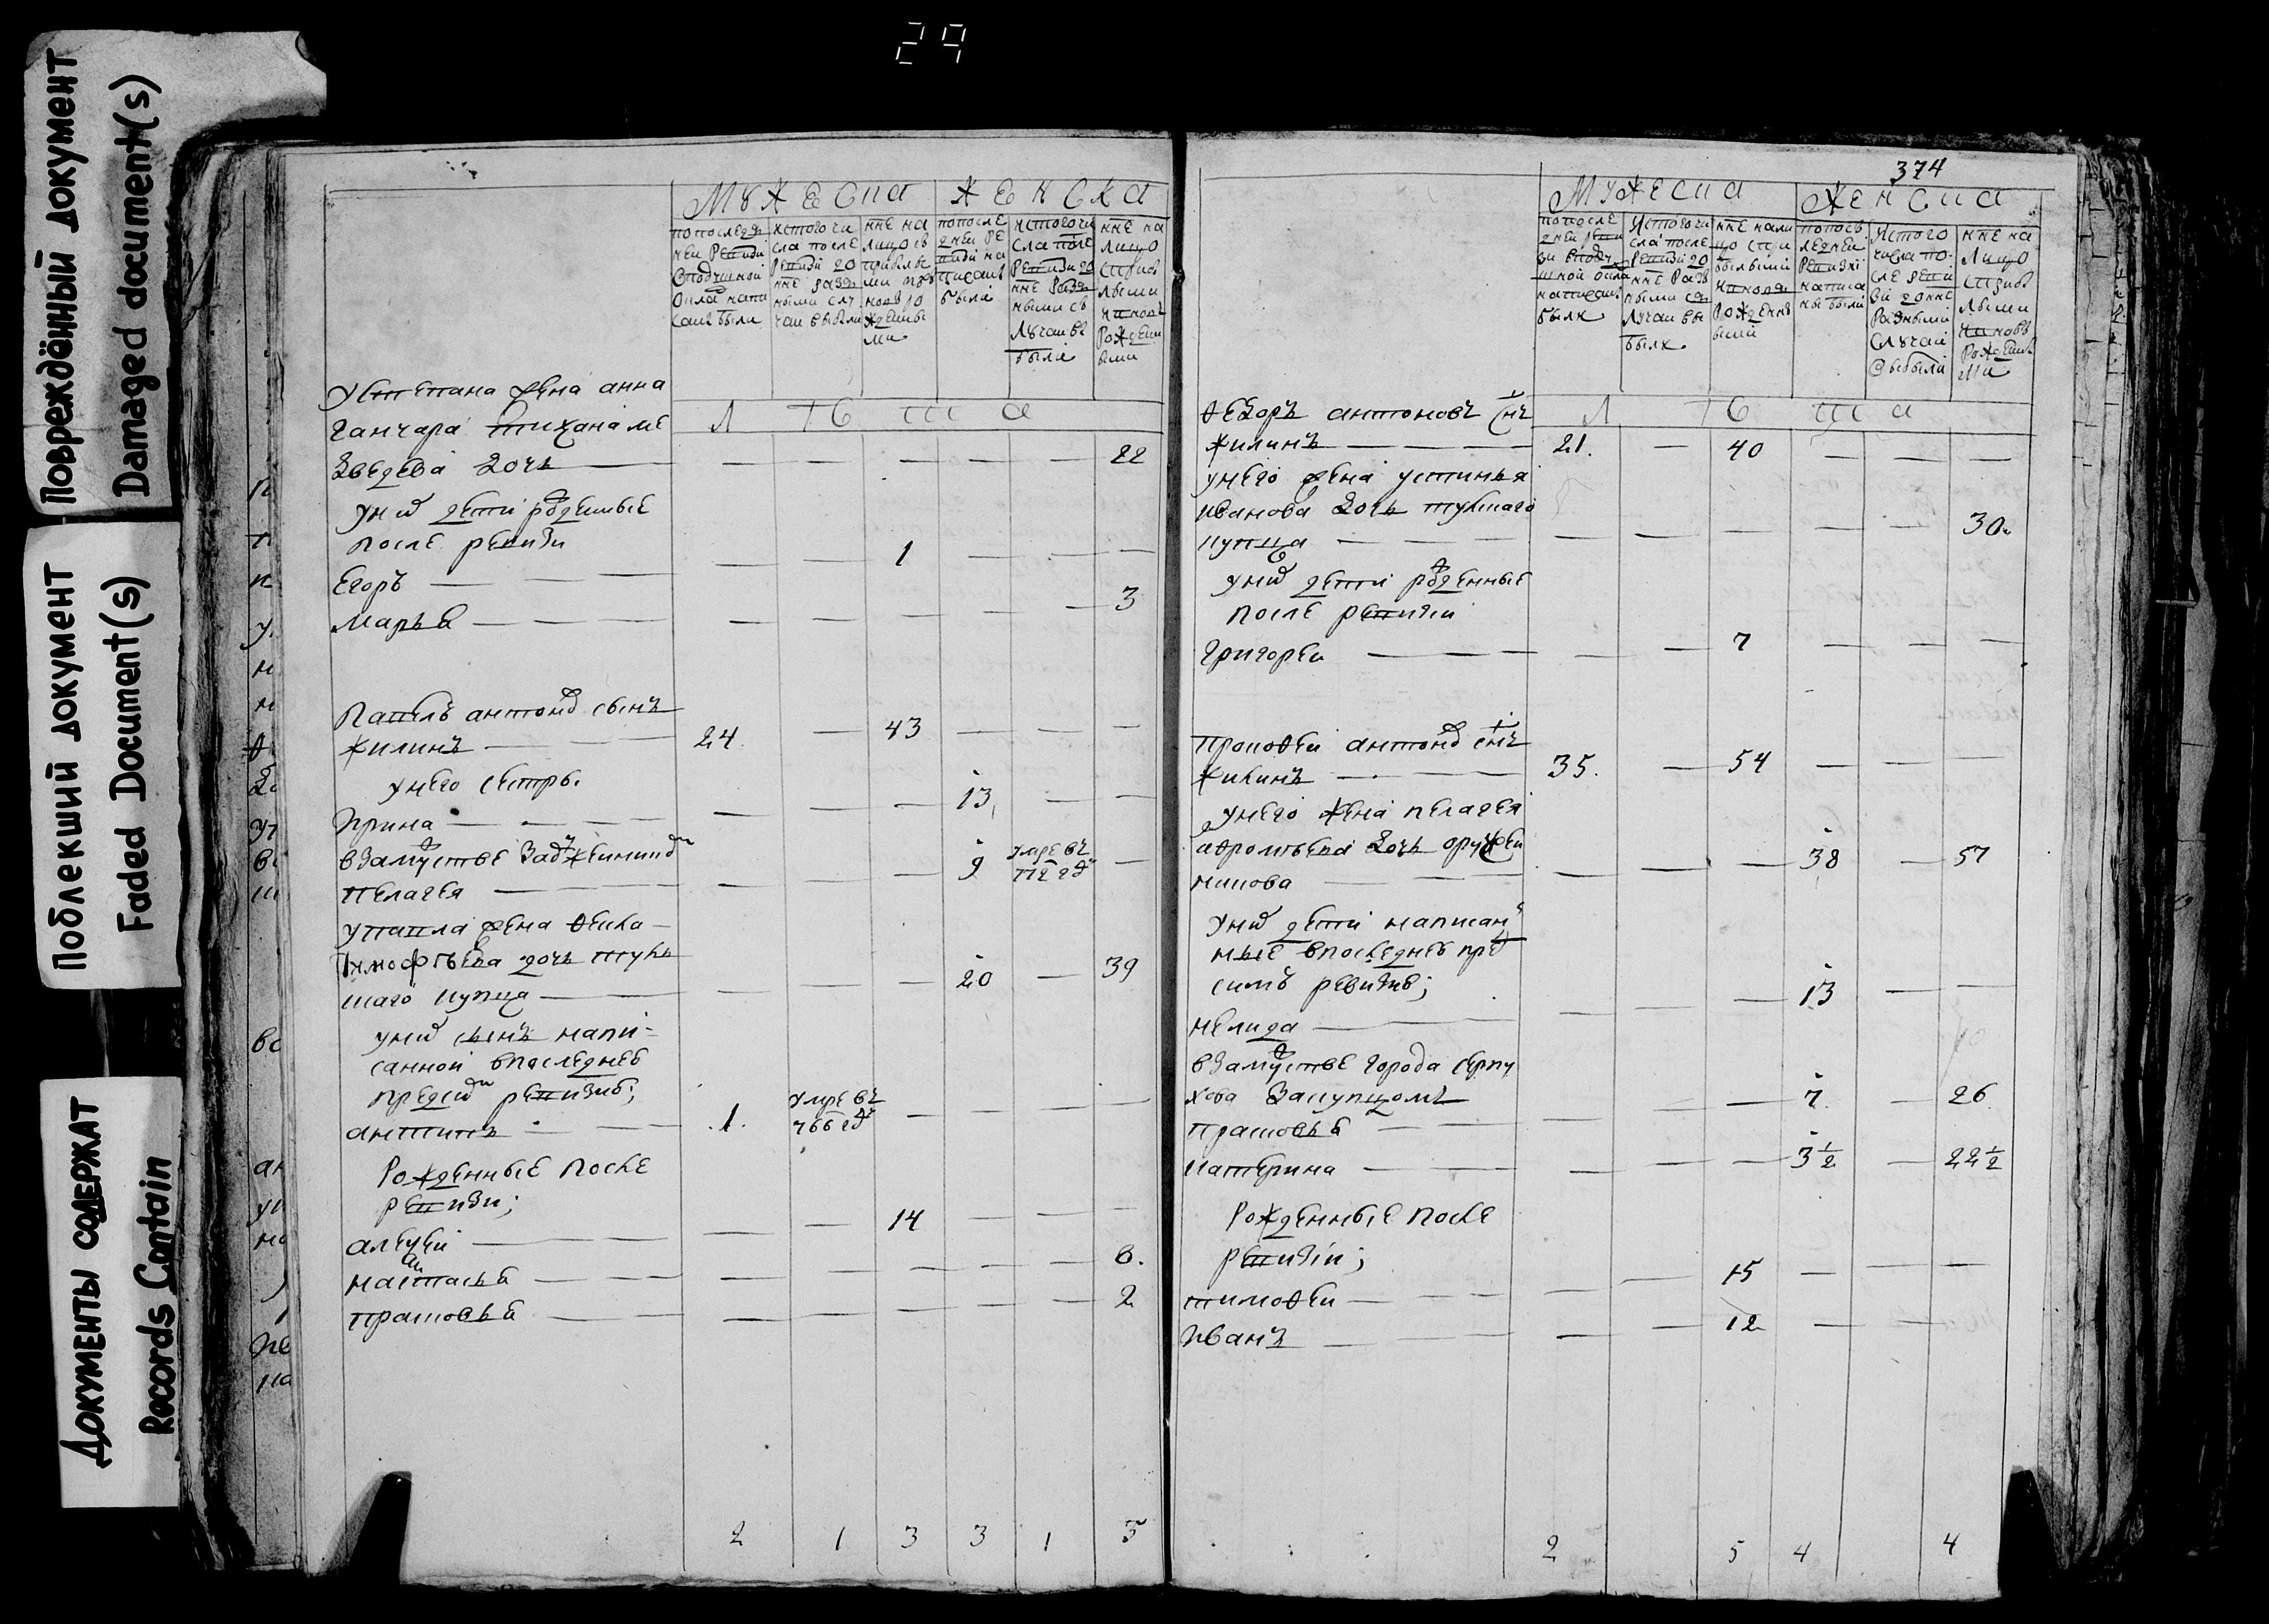 29
Повреждённый документ
Damaged document(s)
Поблекший документ
Faded Document(s)
Документы содержат
Records Contain
мужеска женска
по последней ревизии в подушной оклад написаны были
ис того числа после ревизии до нне разными случаи выбыли
нне на лицо с прибылыми и вновь рожденными
по последней ревизии написаны были
ис того числа после ревизии до нне разными случаи выбыли
нне на лицо с прибылыми и вновь рожденными
лѣта
у степана жена анна
ганчара тихана ме
дведева дочь — — — — — — 22
у них дети рожденные
после ревизи
егоръ — — — 1 — — —
марья — — — — — — 3
павелъ антонов сынъ
жилинъ — 24. — 43 — — —
у него сестры
ирина — — — — 13 — —
в замужстве за оружейником
пелагея — — — — 9 умре въ гд —
у павла жена фекла
тимофѣева дочь туль
скаго купца — — — — 20 — 39
у них сынъ напи-
санной в последней
пред сим ревизиі;
антипъ — 1. умре въ 766 гд — — — —
рожденные после
ревизи;
алексеи — — — 14 — — —
настасья — — — — — — 6.
прасковья — — — — — — 2
2 1 3 3 1 5
374
мужеска женска
по последней ревизи в подушной оклад написаны были
ис того числа после ревизии до нне разными случаи выбыли
нне на лицо с прибылыми и вновь рожденными
по последней ревизиі написаны были
ис того числа после ревизиі до нне разными случаи выбыли
нне на лицо с прибылыми и вновь рожденными
лѣта
ѳедоръ антоновъ снъ
жилинъ — 21. — 40 — — —
у него жена устинья
иванова дочь тульскаго
купца — — — — — — 30.
у них дети рожденные
после ревизиі
григореи — — — 7 — — —
прокоѳеи антонов снъ
жилинъ — 35. — 54 — — —
у него жена пелагея
аѳромѣева дочь оружеи
никова — — — — 38 — 57
у них дети написан
ные в последней пред
симъ ревизиі;
нелида — — — — 13 — —
в замужстве города серпу
хова за купцомъ
прасковья — — — — 7. — 26
катерина — — — — 3½ — 22½
рожденные после
ревизіи;
тимоѳеи — — — 15 — — —
иванъ — — — 12 — — —
2 5 4 4